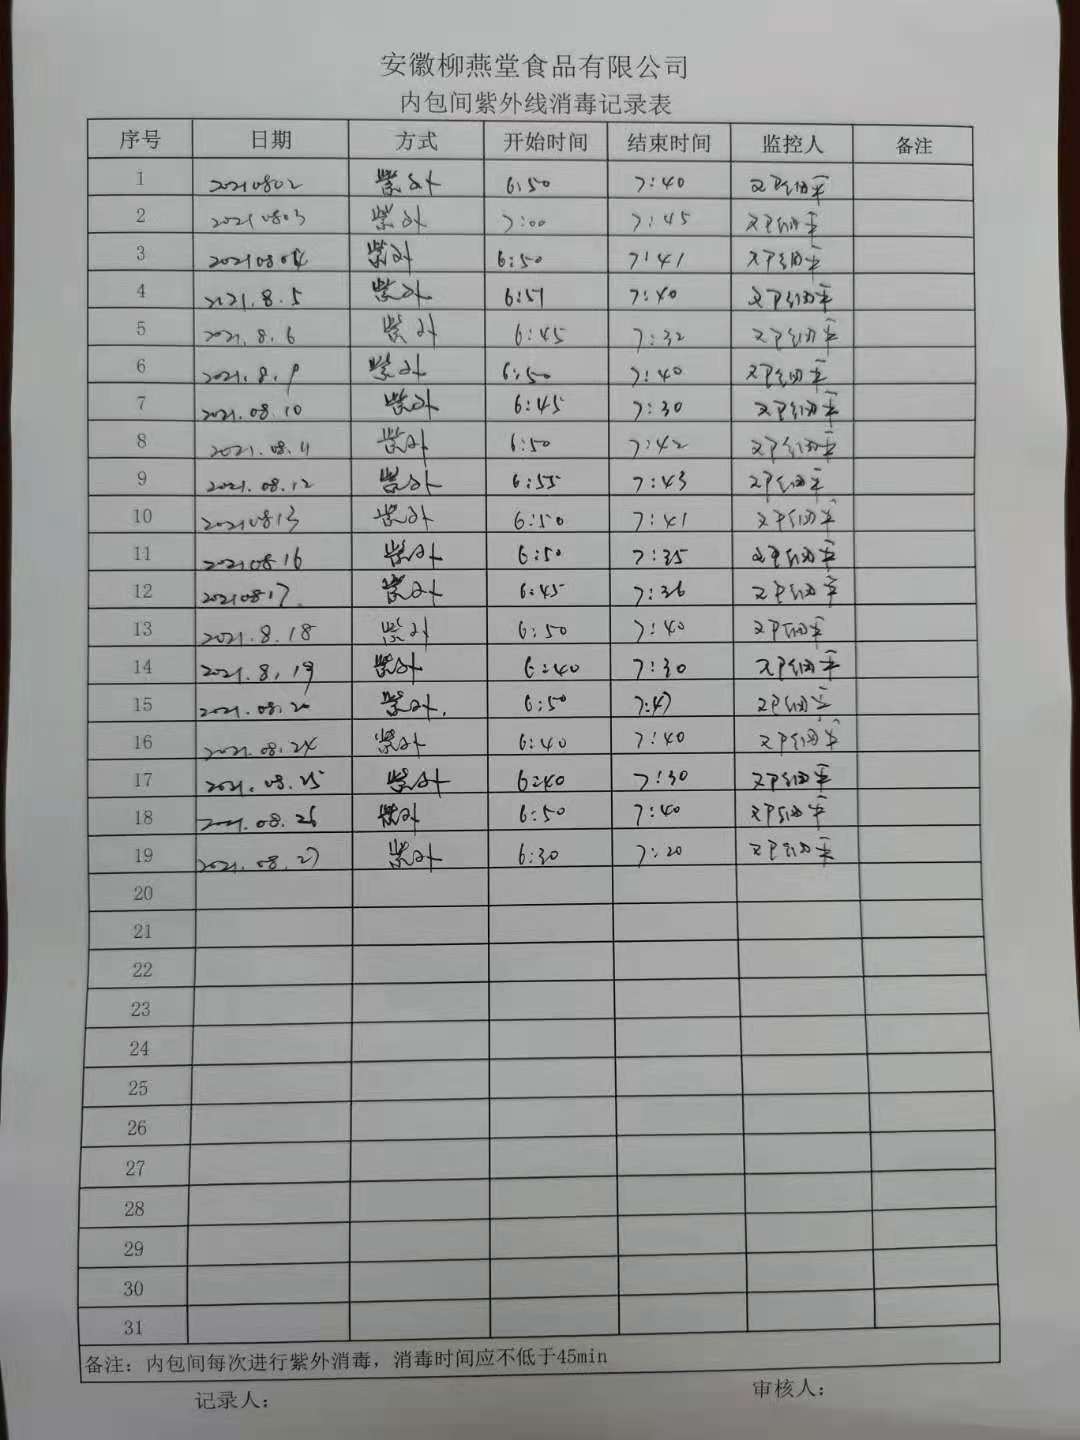 安徽柳燕堂食品有限公司
内包间紫外线消毒记录表
序号 日期 方式 开始时间 结束时间 监控人 备注
1 20210802 紫外 6:50 7:40
2 20210803 紫外 7:00 7:45
3 20210804 紫外 6:50 7:41
4 2121.8.5 紫外 6:51 7:40
5 2021.8.6 紫外 6:45 7:32
6 2021.8.9 紫外 6:50 7:40
7 2021.08.10 紫外 6:45 7:30
8 2021.08.11 紫外 6:50 7:42
9 2021.08.12 紫外 6:55 7:43
10 20210813 紫外 6:50 7:41
11 20210816 紫外 6:50 7:35
12 20210817. 紫外 6:45 7:36
13 2021.8.18 紫外 6:50 7:40
14 2021.8.19 紫外 6:40 7:30
15 2021.08.20 紫外. 6:50 7:47
16 2021.08.24 紫外 6:40 7:40
17 2021.08.25 紫外 6:40 7:30
18 2021.08.26 紫外 6:50 7:40
19 2021.08.27 紫外 6:30 7:20
20
21
22
23
24
25
26
27
28
29
30
31
备注：内包间每次进行紫外消毒，消毒时间应不低于45min
记录人： 审核人：